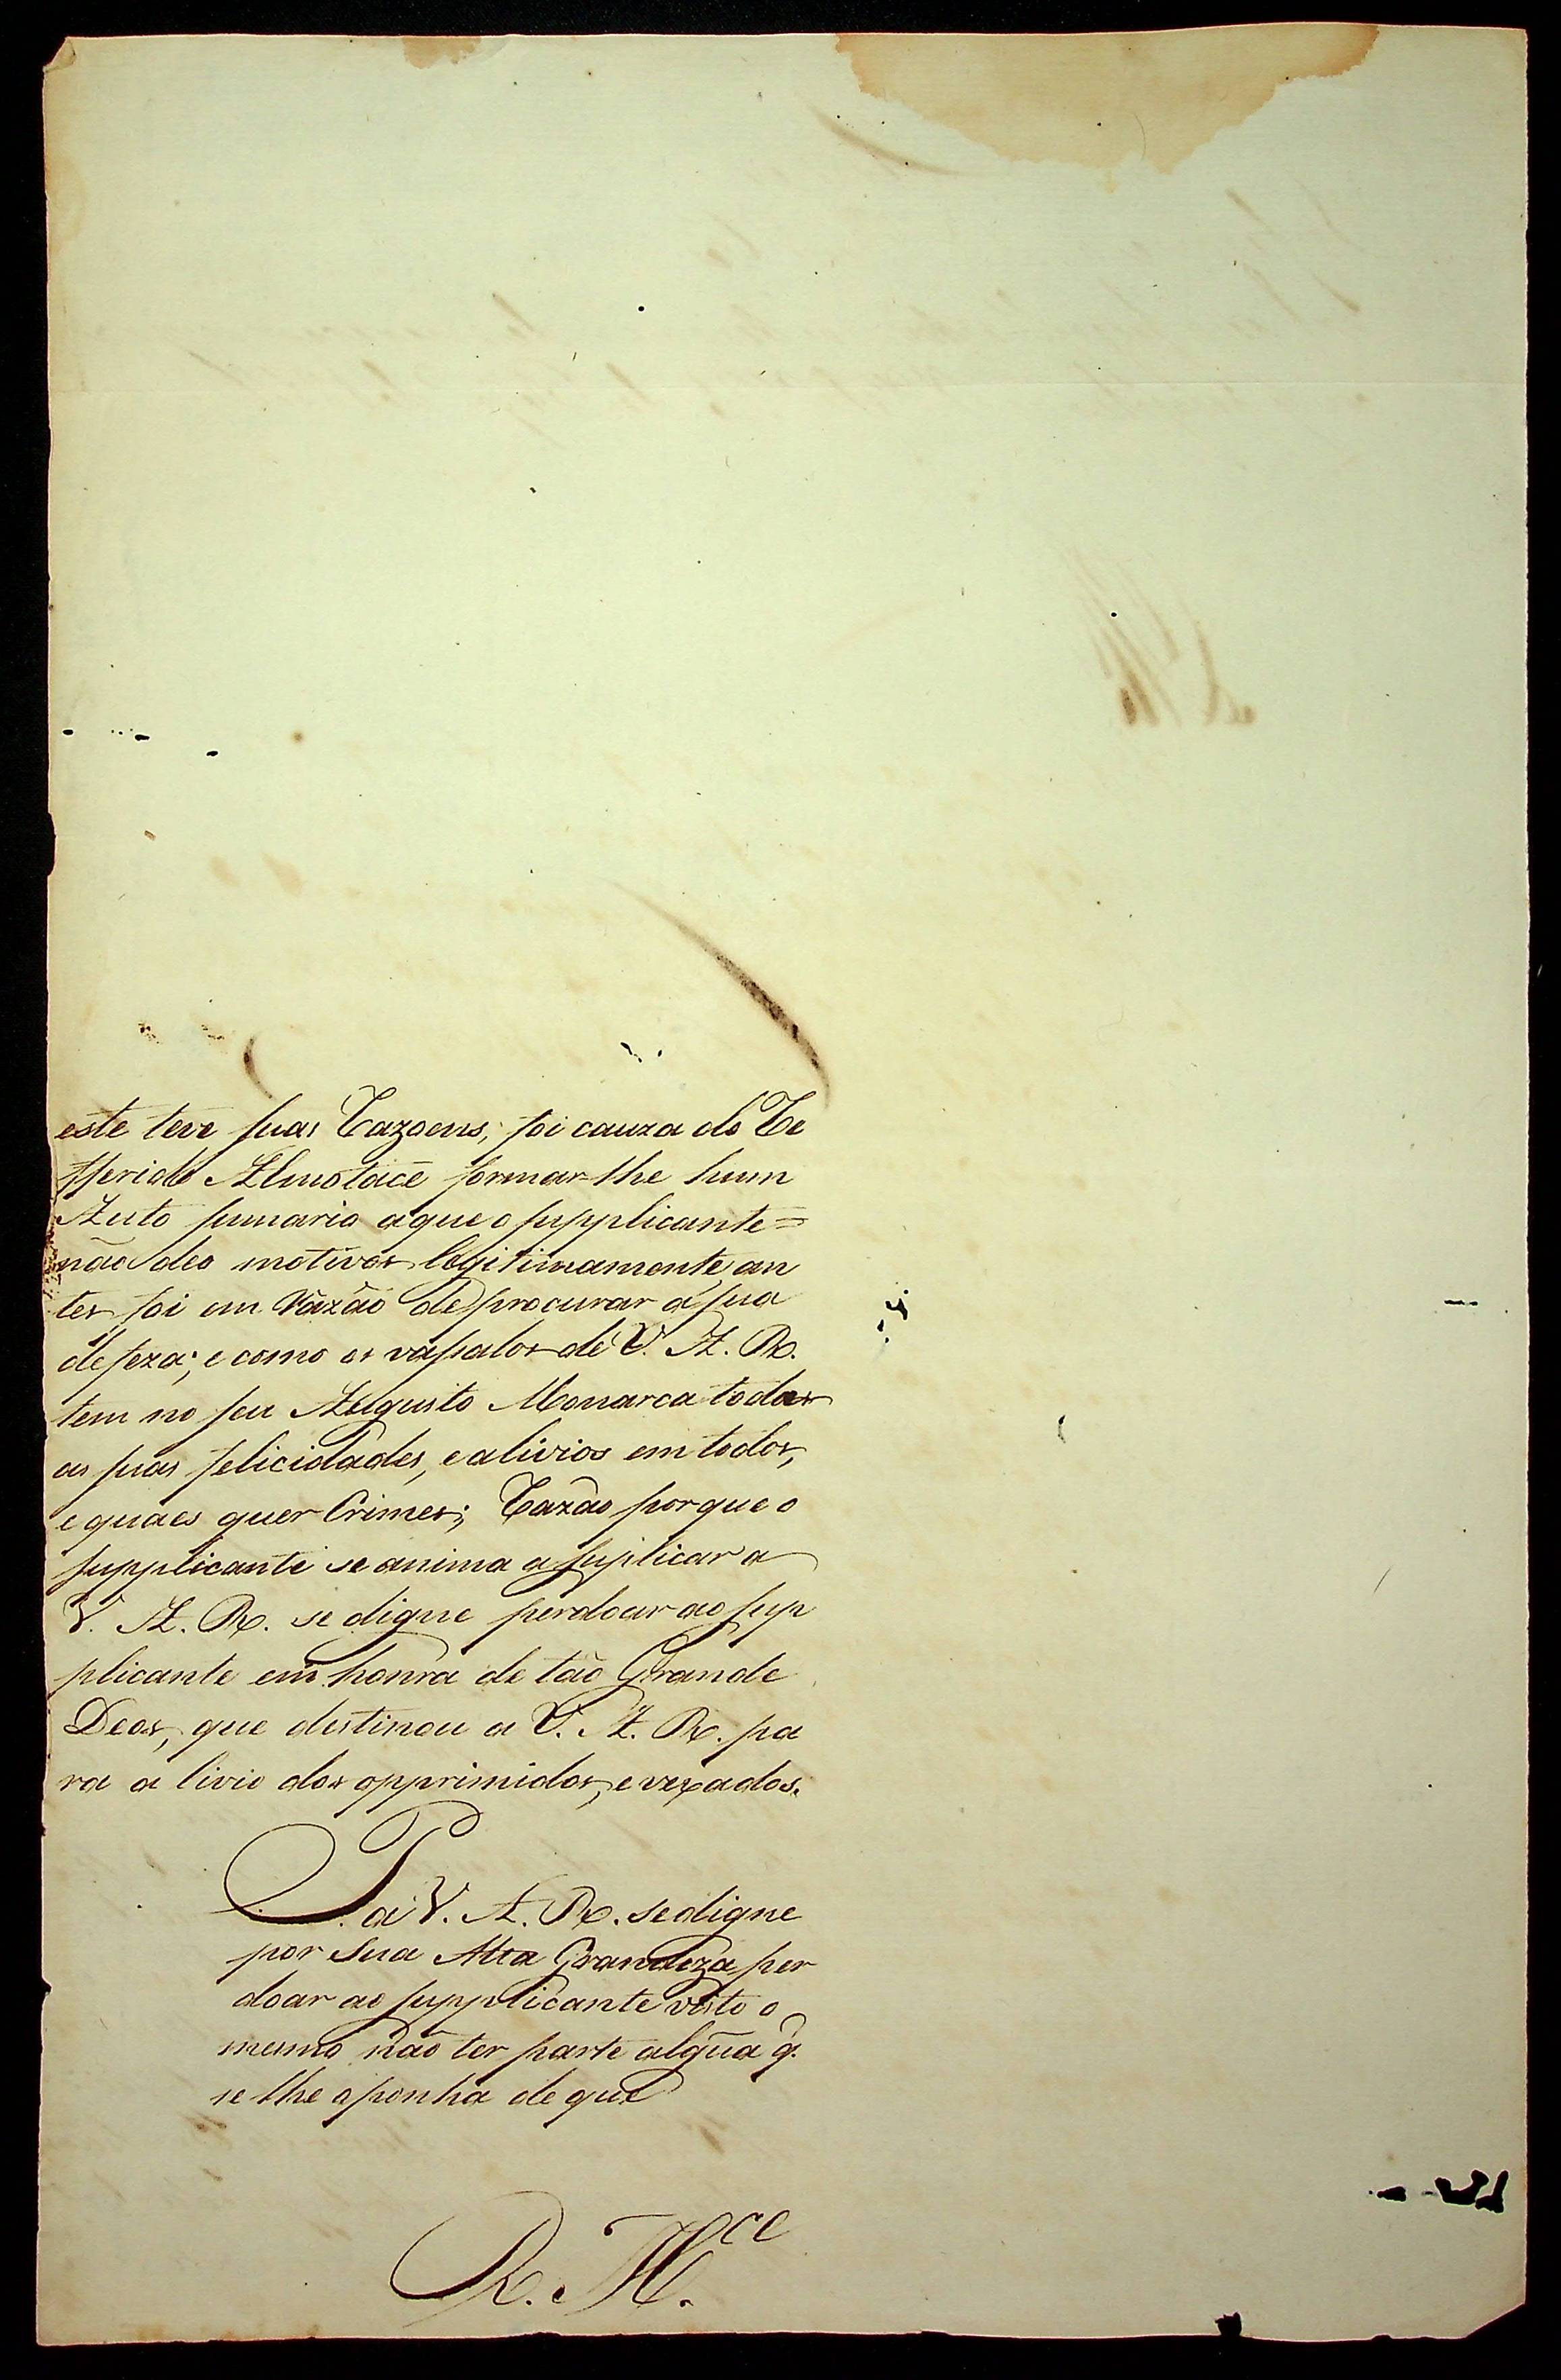 este teve suas Razoens, foi cauza do Re
fferido Almotacé formar-lhe hum
Auto sumario a que o supplicante =
não deo motivos legitimamente an
tes foi em Razão de procurar a sua
defeza; e como os vasalos de V. A. R.
tem no seu Augusto Monarca todas
as suas felicidades, e alivios em todos,
e quaes quer Crimes; Razão porque o
supplicante se anima a suplicar a
V. A. R. se digne perdoar ao sup
plicante em honra de tão Grande
Deos, que destinou a V. A. R. pa
ra a livio dos opprimidos, e vexados.
P. a V. A. R. se digne
por Sua Alta Grandeza per
doar ao supplicante visto o
mesmo não ter parte algũa q.
se lhe oponha de que
R. M.ce